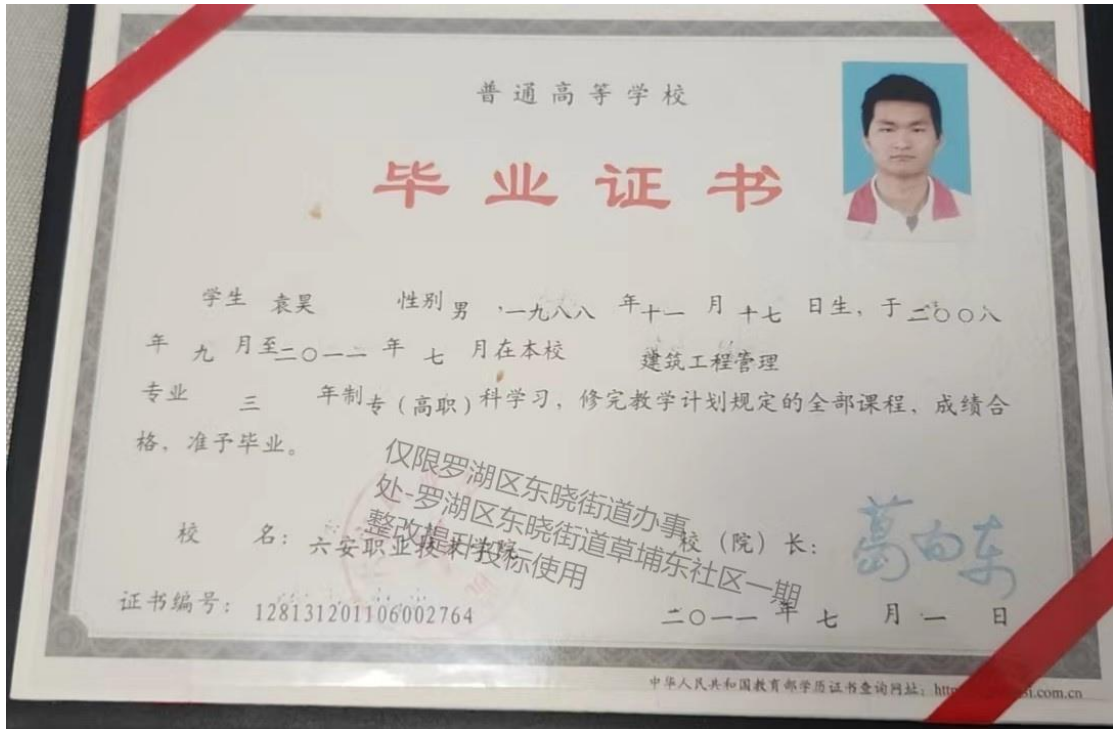 普通高等学校
毕业证书
学生 袁昊 性别 男,一九八八 年 十一 月 十七 日生,于 二〇〇八
年 九 月至 二〇一一 年 七 月在本校 建筑工程管理
专业 三 年制 专(高职) 科学习,修完教学计划规定的全部课程,成绩合
格,准予毕业。
仅限罗湖区东晓街道办事
处-罗湖区东晓街道草埔东社区一期
整改提升投标使用
校 名: 六安职业技术学院 校(院)长: 葛向东
证书编号: 128131201106002764 二〇一一 年 七 月 一 日
中华人民共和国教育部学历证书查询网址: si.com.cn